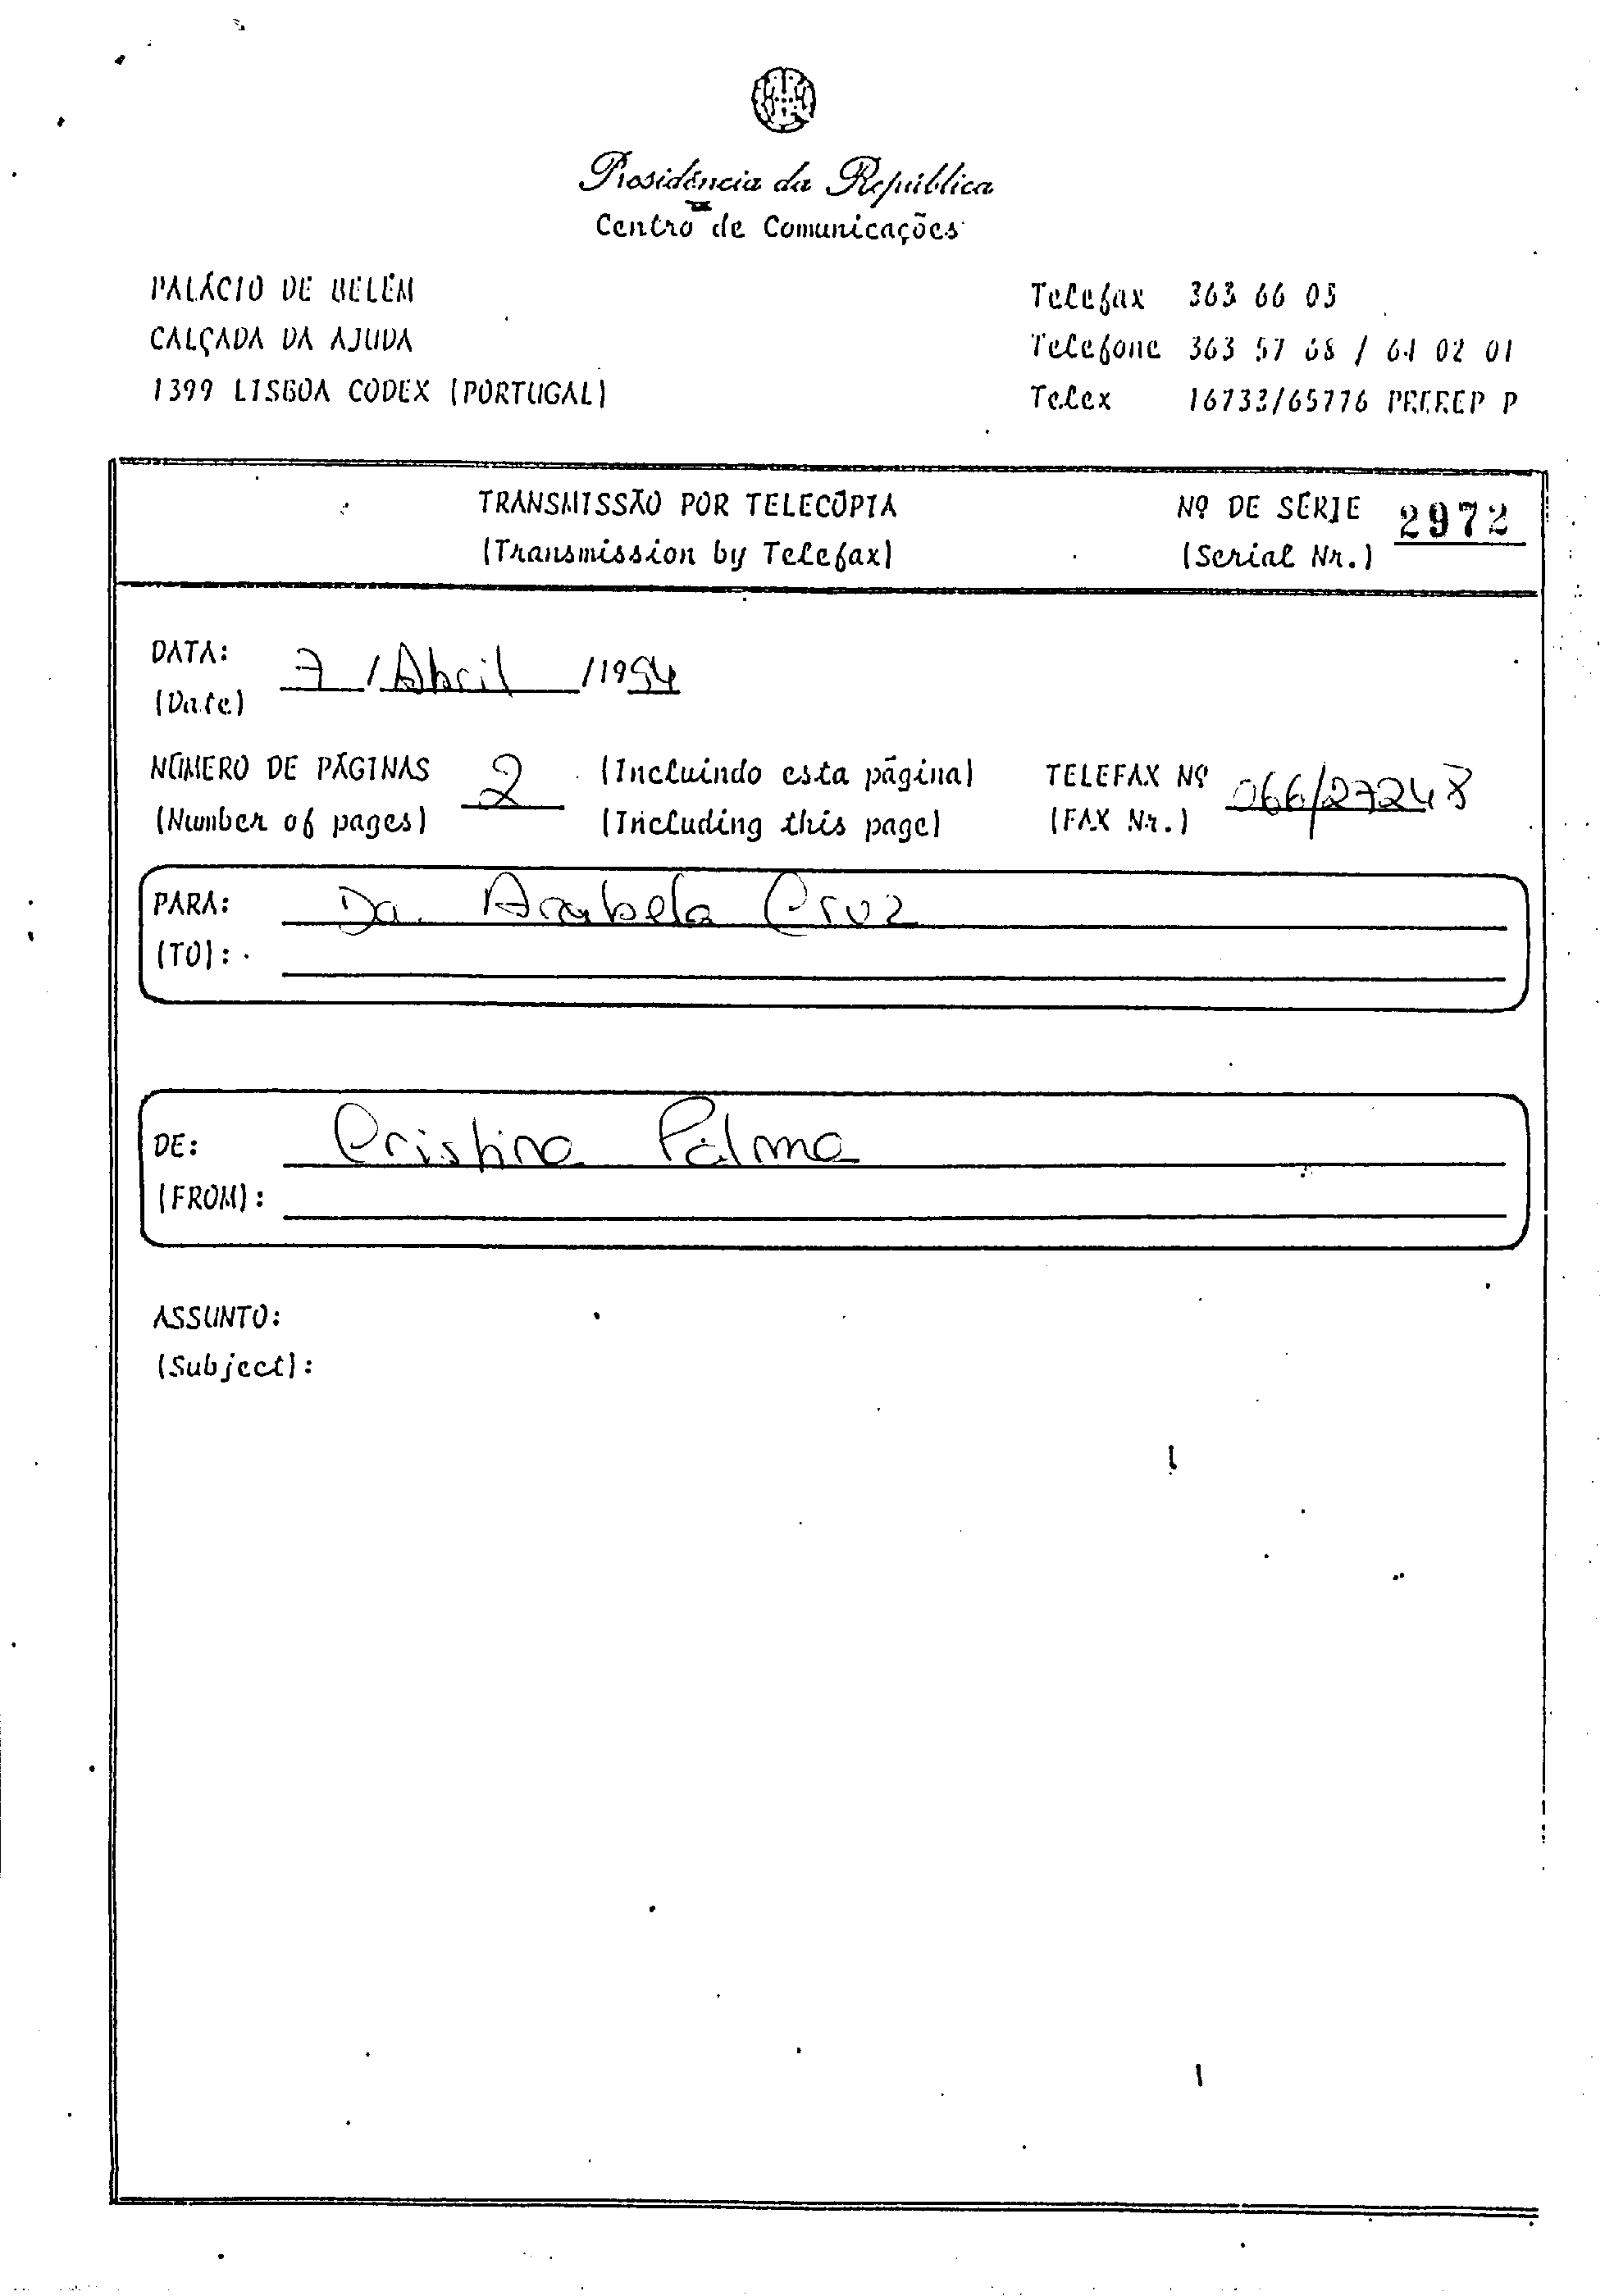 Presidência da República
Centro de Comunicações
PALÁCIO DE BELÉM
CALÇADA DA AJUDA
1399 LISBOA CODEX (PORTUGAL)
Telefax 363 66 05
Telefone 363 57 68 / 64 02 01
Telex 16733/65776 PREREP P
TRANSMISSÃO POR TELECÓPIA
(Transmission by Telefax)
Nº DE SÉRIE 2972
(Serial Nr.)
DATA: 7 / Abril / 1994
(Date)
NÚMERO DE PÁGINAS 2 (Incluindo esta página) TELEFAX Nº 066/27248
(Number of pages) (Including this page) (FAX Nr.)
PARA: Da. Arabela Cruz
(TO):
DE: Cristina Palma
(FROM):
ASSUNTO:
(Subject):